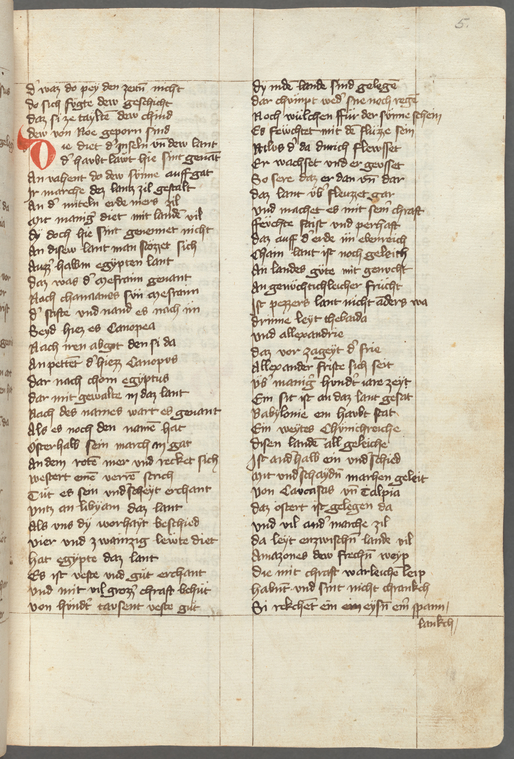 5.
d' waz do pey den zeitñ nicht
do sich fügte dew geschicht
daz si ze taylte dew chind
dew von Noe geporn sind
Die diet d' Inseln vñ dew lant
d' hawbt lawt hie sint genãt
An vahent do dew sonne auff gat
Ir marche dez lantz zil gestalt
An d' miteln erde mers zil
Mit manig' diet mit lande vil
dy doch hie sint genennet nicht
An disew lant man stozzet sich
Auzz habm egypten lant
daz was d' Mesraim genant
Nach chananes sün mesraim
d' stifte vnd nand es nach im
Seyd hiez es Canopea
Nach iren abgot den si da
An petten d' hiezz Canopus
dar nach chom egyptus
dar mit gewalte in daz lant
Nach des names wart es genant
Als es noch den name hat
Osterhalb sein march in gat
An dem rote mer vnd recket sich
westert ene verre strich
Tüt es sein vnd scheyt erchant
Vntz an libyam daz lant
Als vns dy worhayt beschied
vier vnd zwainzig lewte diet
hat egypte daz lant
Es ist veste vnd güt erchant
vnd mit vil grozz' chraft behüt
von hyndt tavsent veste güt
dy inde lande sind gelege
dar chumpt wed' sne noch rege
Noch wülchen für der sonne schein
Es fewchtet mit de fluzze sein
Nilus d' da durich flewsset
Er wachset vnd er geosset
So sere daz er dan vñ dar
daz lant vb' flewzet gar
vnd machet es mit sein' chraft
fewchte faist vnd perhaft
daz auff d' erde im ebenreich
Chain lant ist noch geleich
An landes güte mit genucht
An genüchtichleicher frücht
Ist pezzers lant nicht ãders wa
drinne leyt thebaida
vnd allexandrie
daz vor zageyt d' frie
Allexander stifte sich seit
vb' manig' hyndt iare zeyt
Ein stat ist an daz lant gesat
Babylonie ein haubt stat
Ein weytes Chünichreiche
disen lande all geleiche
Ist and'halb ein vnd'schied
Mit vnd'schaydñ marhen geleit
von Caucasus vñ Talpia
daz ostert ist gelegen da
vnd vil and' marche zil
da leyt enzwischñ lande vil
Amazones dew frechñ weyp
die mit chraft warleiche leip
habnt vnd sint nicht chranckch
Si rekchet ein em eysñ ein' spann/
lankch/